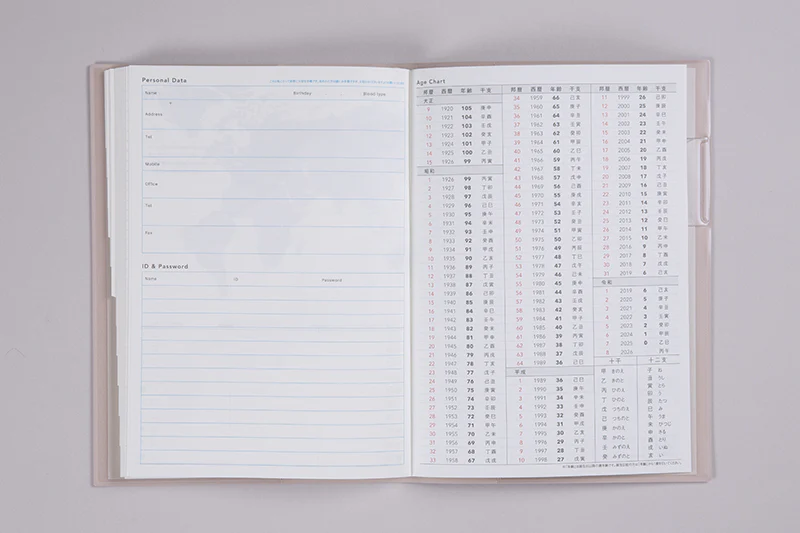 Personal Data
Name Birthday Blood type
Address
Tel
Mobile
Office
Tel
Fax
ID & Password
Name ID Password
Age Chart
邦暦 西暦 年齢 干支
大正
9 1920 105 庚申
10 1921 104 辛酉
11 1922 103 壬戌
12 1923 102 癸亥
13 1924 101 甲子
14 1925 100 乙丑
15 1926 99 丙寅
昭和
1 1926 99 丙寅
2 1927 98 丁卯
3 1928 97 戊辰
4 1929 96 己巳
5 1930 95 庚午
6 1931 94 辛未
7 1932 93 壬申
8 1933 92 癸酉
9 1934 91 甲戌
10 1935 90 乙亥
11 1936 89 丙子
12 1937 88 丁丑
13 1938 87 戊寅
14 1939 86 己卯
15 1940 85 庚辰
16 1941 84 辛巳
17 1942 83 壬午
18 1943 82 癸未
19 1944 81 甲申
20 1945 80 乙酉
21 1946 79 丙戌
22 1947 78 丁亥
23 1948 77 戊子
24 1949 76 己丑
25 1950 75 庚寅
26 1951 74 辛卯
27 1952 73 壬辰
28 1953 72 癸巳
29 1954 71 甲午
30 1955 70 乙未
31 1956 69 丙申
32 1957 68 丁酉
33 1958 67 戊戌
邦暦 西暦 年齢 干支
34 1959 66 己亥
35 1960 65 庚子
36 1961 64 辛丑
37 1962 63 壬寅
38 1963 62 癸卯
39 1964 61 甲辰
40 1965 60 乙巳
41 1966 59 丙午
42 1967 58 丁未
43 1968 57 戊申
44 1969 56 己酉
45 1970 55 庚戌
46 1971 54 辛亥
47 1972 53 壬子
48 1973 52 癸丑
49 1974 51 甲寅
50 1975 50 乙卯
51 1976 49 丙辰
52 1977 48 丁巳
53 1978 47 戊午
54 1979 46 己未
55 1980 45 庚申
56 1981 44 辛酉
57 1982 43 壬戌
58 1983 42 癸亥
59 1984 41 甲子
60 1985 40 乙丑
61 1986 39 丙寅
62 1987 38 丁卯
63 1988 37 戊辰
64 1989 36 己巳
平成
1 1989 36 己巳
2 1990 35 庚午
3 1991 34 辛未
4 1992 33 壬申
5 1993 32 癸酉
6 1994 31 甲戌
7 1995 30 乙亥
8 1996 29 丙子
9 1997 28 丁丑
10 1998 27 戊寅
邦暦 西暦 年齢 干支
11 1999 26 己卯
12 2000 25 庚辰
13 2001 24 辛巳
14 2002 23 壬午
15 2003 22 癸未
16 2004 21 甲申
17 2005 20 乙酉
18 2006 19 丙戌
19 2007 18 丁亥
20 2008 17 戊子
21 2009 16 己丑
22 2010 15 庚寅
23 2011 14 辛卯
24 2012 13 壬辰
25 2013 12 癸巳
26 2014 11 甲午
27 2015 10 乙未
28 2016 9 丙申
29 2017 8 丁酉
30 2018 7 戊戌
31 2019 6 己亥
令和
1 2019 6 己亥
2 2020 5 庚子
3 2021 4 辛丑
4 2022 3 壬寅
5 2023 2 癸卯
6 2024 1 甲辰
7 2025 0 乙巳
8 2026 丙午
十干 十二支
甲 きのえ 子 ね
乙 きのと 丑 うし
丙 ひのえ 寅 とら
丁 ひのと 卯 う
戊 つちのえ 辰 たつ
己 つちのと 巳 み
庚 かのえ 午 うま
辛 かのと 未 ひつじ
壬 みずのえ 申 さる
癸 みずのと 酉 とり
戌 いぬ
亥 い